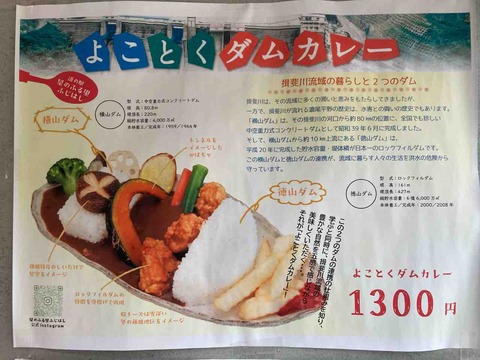 よことくダムカレー
道の駅
星のふる里
ふじはし
横山ダム
横山ダム
型 式:中空重力式コンクリートダム
堤 高:80.8m
堤頂長:220m
総貯水容量:4,000万㎥
本体着工/完成年:1959/1964年
揖斐川流域の暮らしと2つのダム
揖斐川は、その流域に多くの潤いと恵みをもたらしてきましたが、
一方で、揖斐川が流れる濃尾平野の歴史は、水害との闘いの歴史でもあります。
「横山ダム」は、その揖斐川の河口から約80kmの位置に、全国でも珍しい
中空重力式コンクリートダムとして昭和39年6月に完成しました。
そして、横山ダムから約10km上流にある「徳山ダム」は、
平成20年に完成した貯水容量・堤体積が日本一のロックフィルダムです。
この横山ダムと徳山ダムの連携が、流域に暮らす人々の生活を洪水の危険から
守っています。
トンネルを
イメージした
かぼちゃ
徳山ダム
徳山ダム
型 式:ロックフィルダム
堤 高:161m
堤頂長:427m
総貯水容量:6億6,000万㎥
本体着工/完成年:2000/2008年
この2つのダムの連携の仕組みを知り、
学ぶと同時に、揖斐川流域の
豊かな自然を五感で感じながら
美味しくいただく…。
それが「よことくダムカレー」!
ロックフィルダムの
星のふる里ふじはし
公式Instagram
よことくダムカレー
1300円